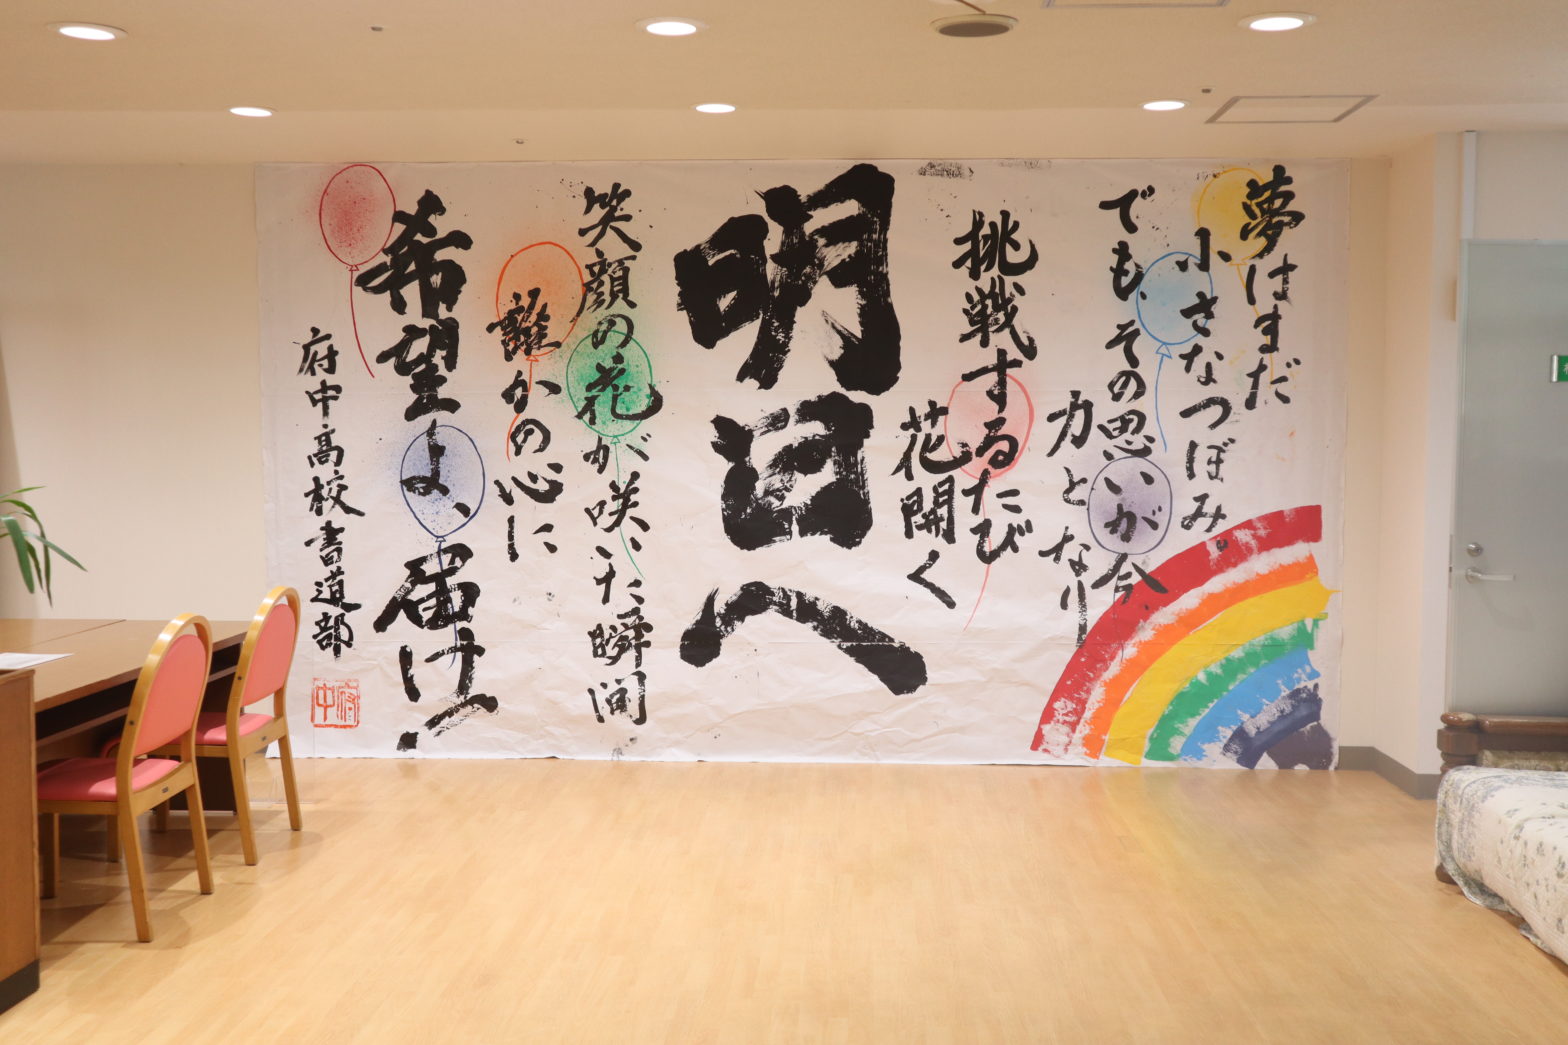 夢はまだ
小さなつぼみ
でも、その思いが今
力となり
挑戦するたび
花開く
明日へ
笑顔の花が咲いた瞬間
誰かの心に
希望よ届け
府中高校書道部
府中